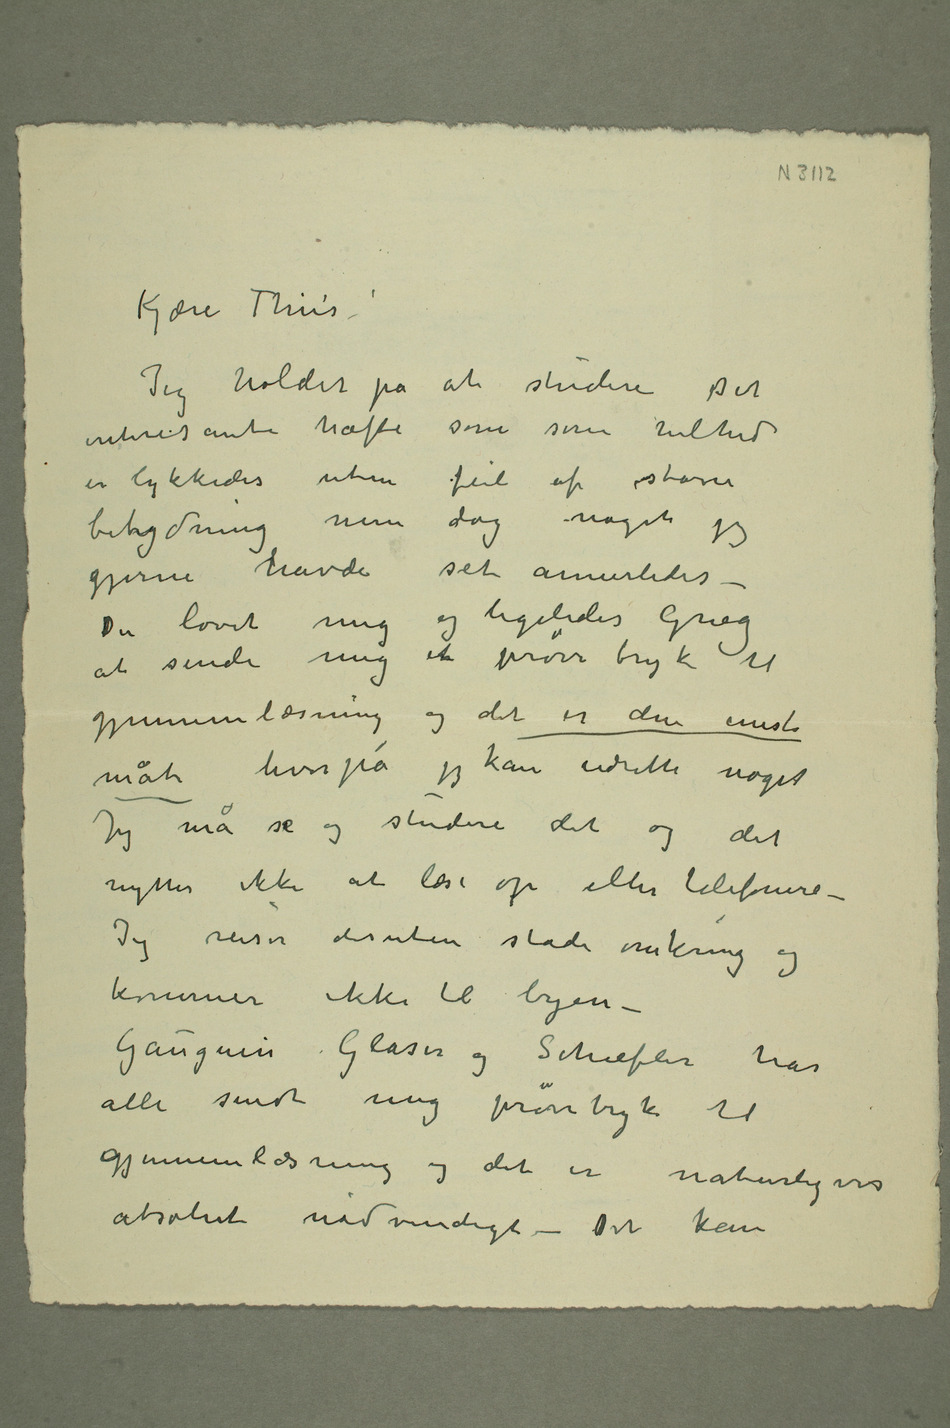 N 3112
Kjære Thiis!
Jeg holder på at studere Det
interesante hæfte som som helhed
er lykkedes uten feil af større
betydning men dog noget jeg
gjerne havde set annerledes –
Du lovet mig og ligeledes Grieg
at sende mig et prøvebryk til
gjennemlæsning og det er den eneste
måte hvorpå jeg kan udrette noget
Jeg må se og studere det og det
nytter ikke at læse op eller telefonere –
Jeg reiser desuten stadi omkring og
kommer ikke til byen –
Gauguin Glaser og Schiefler har
alle sendt mig prøvebryk til
gjennemlæsning og det er naturligvis
absolut nødvendigt – Det kan